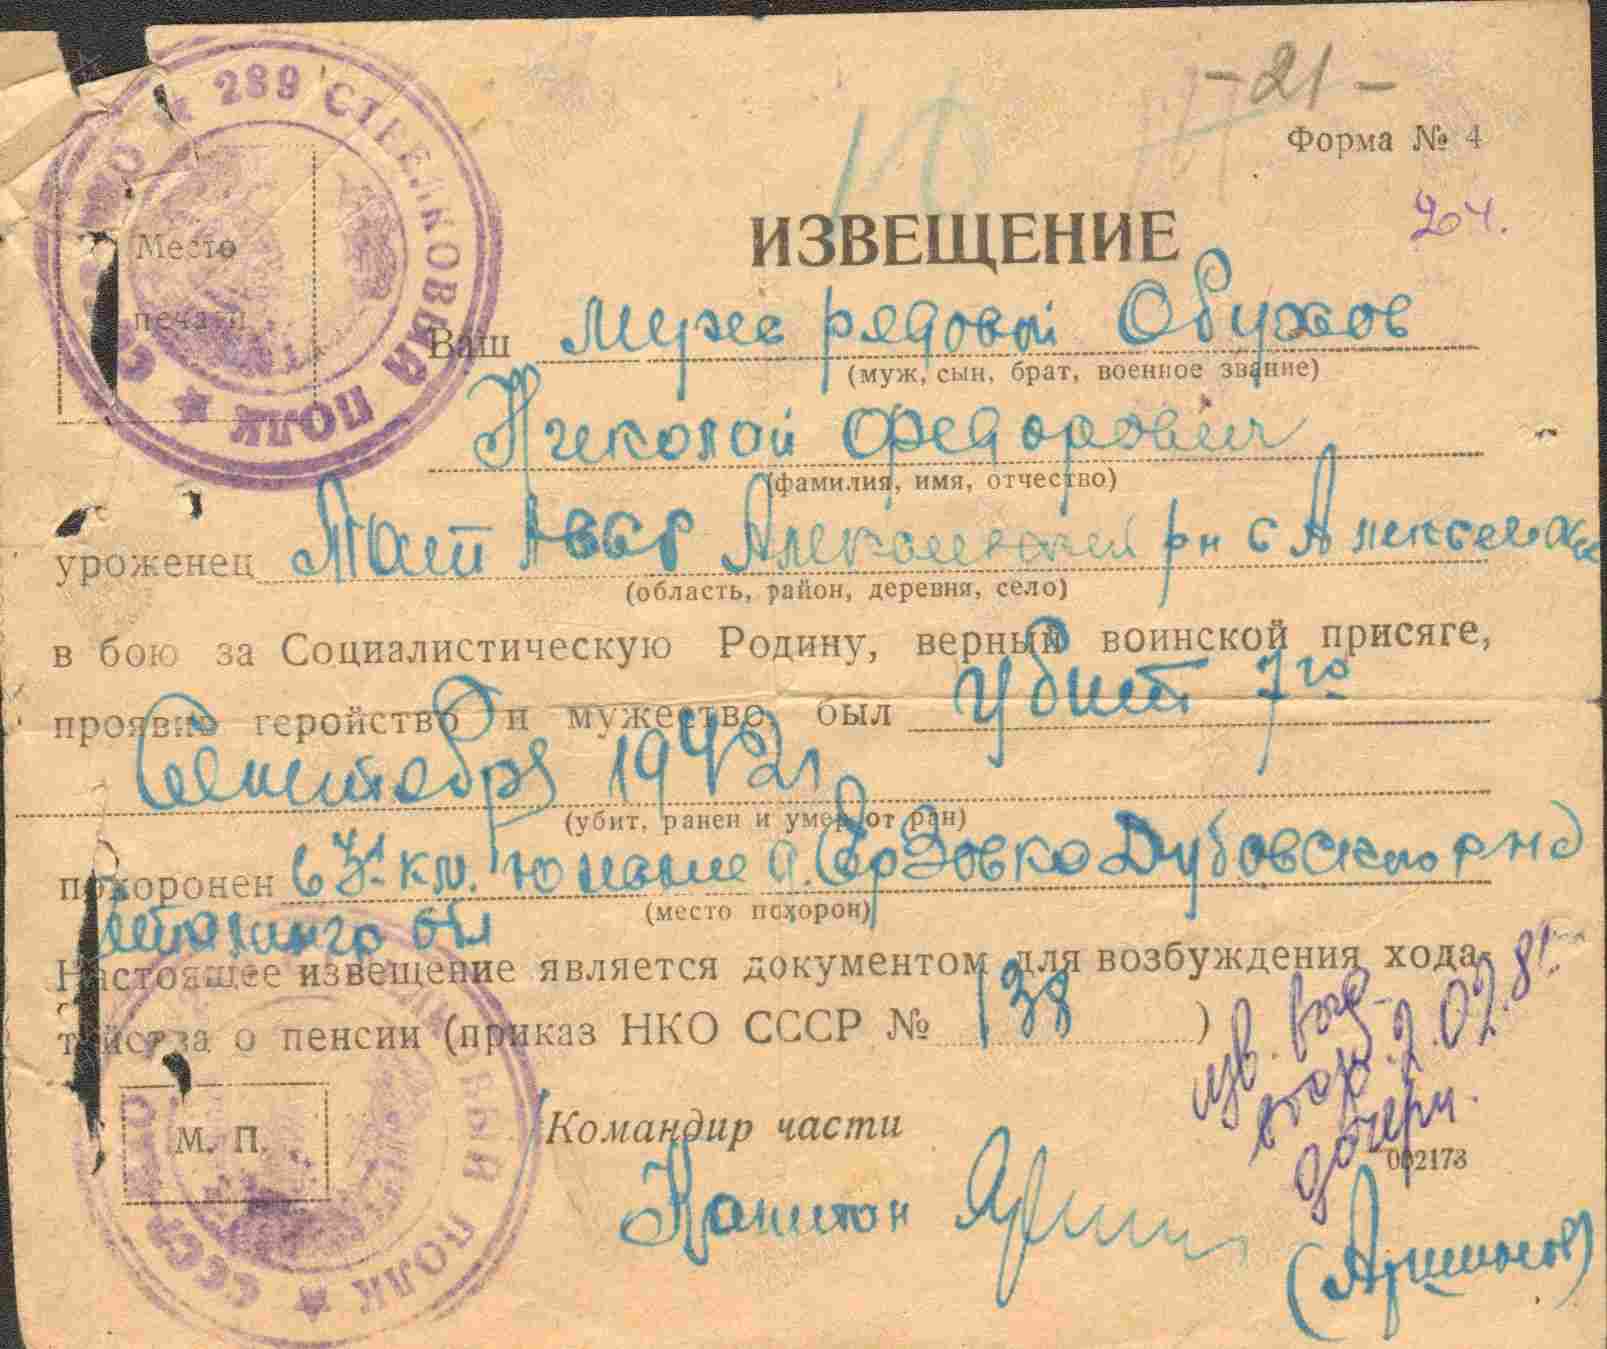 - 21 -
Форма № 4
24.
НКО 289 СТРЕЛКОВЫЙ ПОЛК СССР
Место
печати
ИЗВЕЩЕНИЕ
Ваш муж рядовой Обухов
(муж, сын, брат, военное звание)
Николай Федорович
(фамилия, имя, отчество)
уроженец АССР рн с
(область, район, деревня, село)
в бою за Социалистическую Родину, верный воинской присяге,
проявив геройство и мужество, был убит 7го
Сентября 1942г
(убит, ранен и умер от ран)
похоронен в км. Ерзовка Дубовского рна
(место похорон)
Сталингр обл
Настоящее извещение является документом для возбуждения хода-
тайства о пенсии (приказ НКО СССР № 138 )
СТРЕЛКОВЫЙ ПОЛК СССР
М. П.
Командир части
изв. выд.
2.02.81
дочери.
002173
Капитан